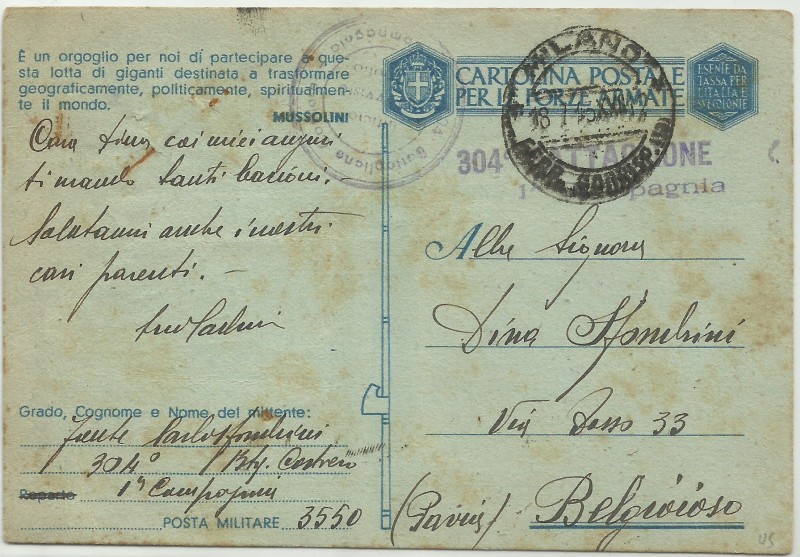 È un orgoglio per noi di partecipare a que-
sta lotta di giganti destinata a trasformare
geograficamente, politicamente, spiritualmen-
te il mondo.
MUSSOLINI
Cara Dina coi miei auguri
ti mando tanti bacioni.
Salutami anche i nostri
cari parenti. –
tuo
Grado, Cognome e Nome del mittente:
Carlo Sfondrini
304° Btg. Costiero
Reparto 1ª Compagnia
POSTA MILITARE 3550
CARTOLINA POSTALE
PER LE FORZE ARMATE
ESENTE DA
TASSA PER
L'ITALIA E
MILANO
18
304° BATTAGLIONE
1ª Compagnia
Alla Signora
Dina Sfondrini
Via Dosso 33
(Pavia) Belgioioso